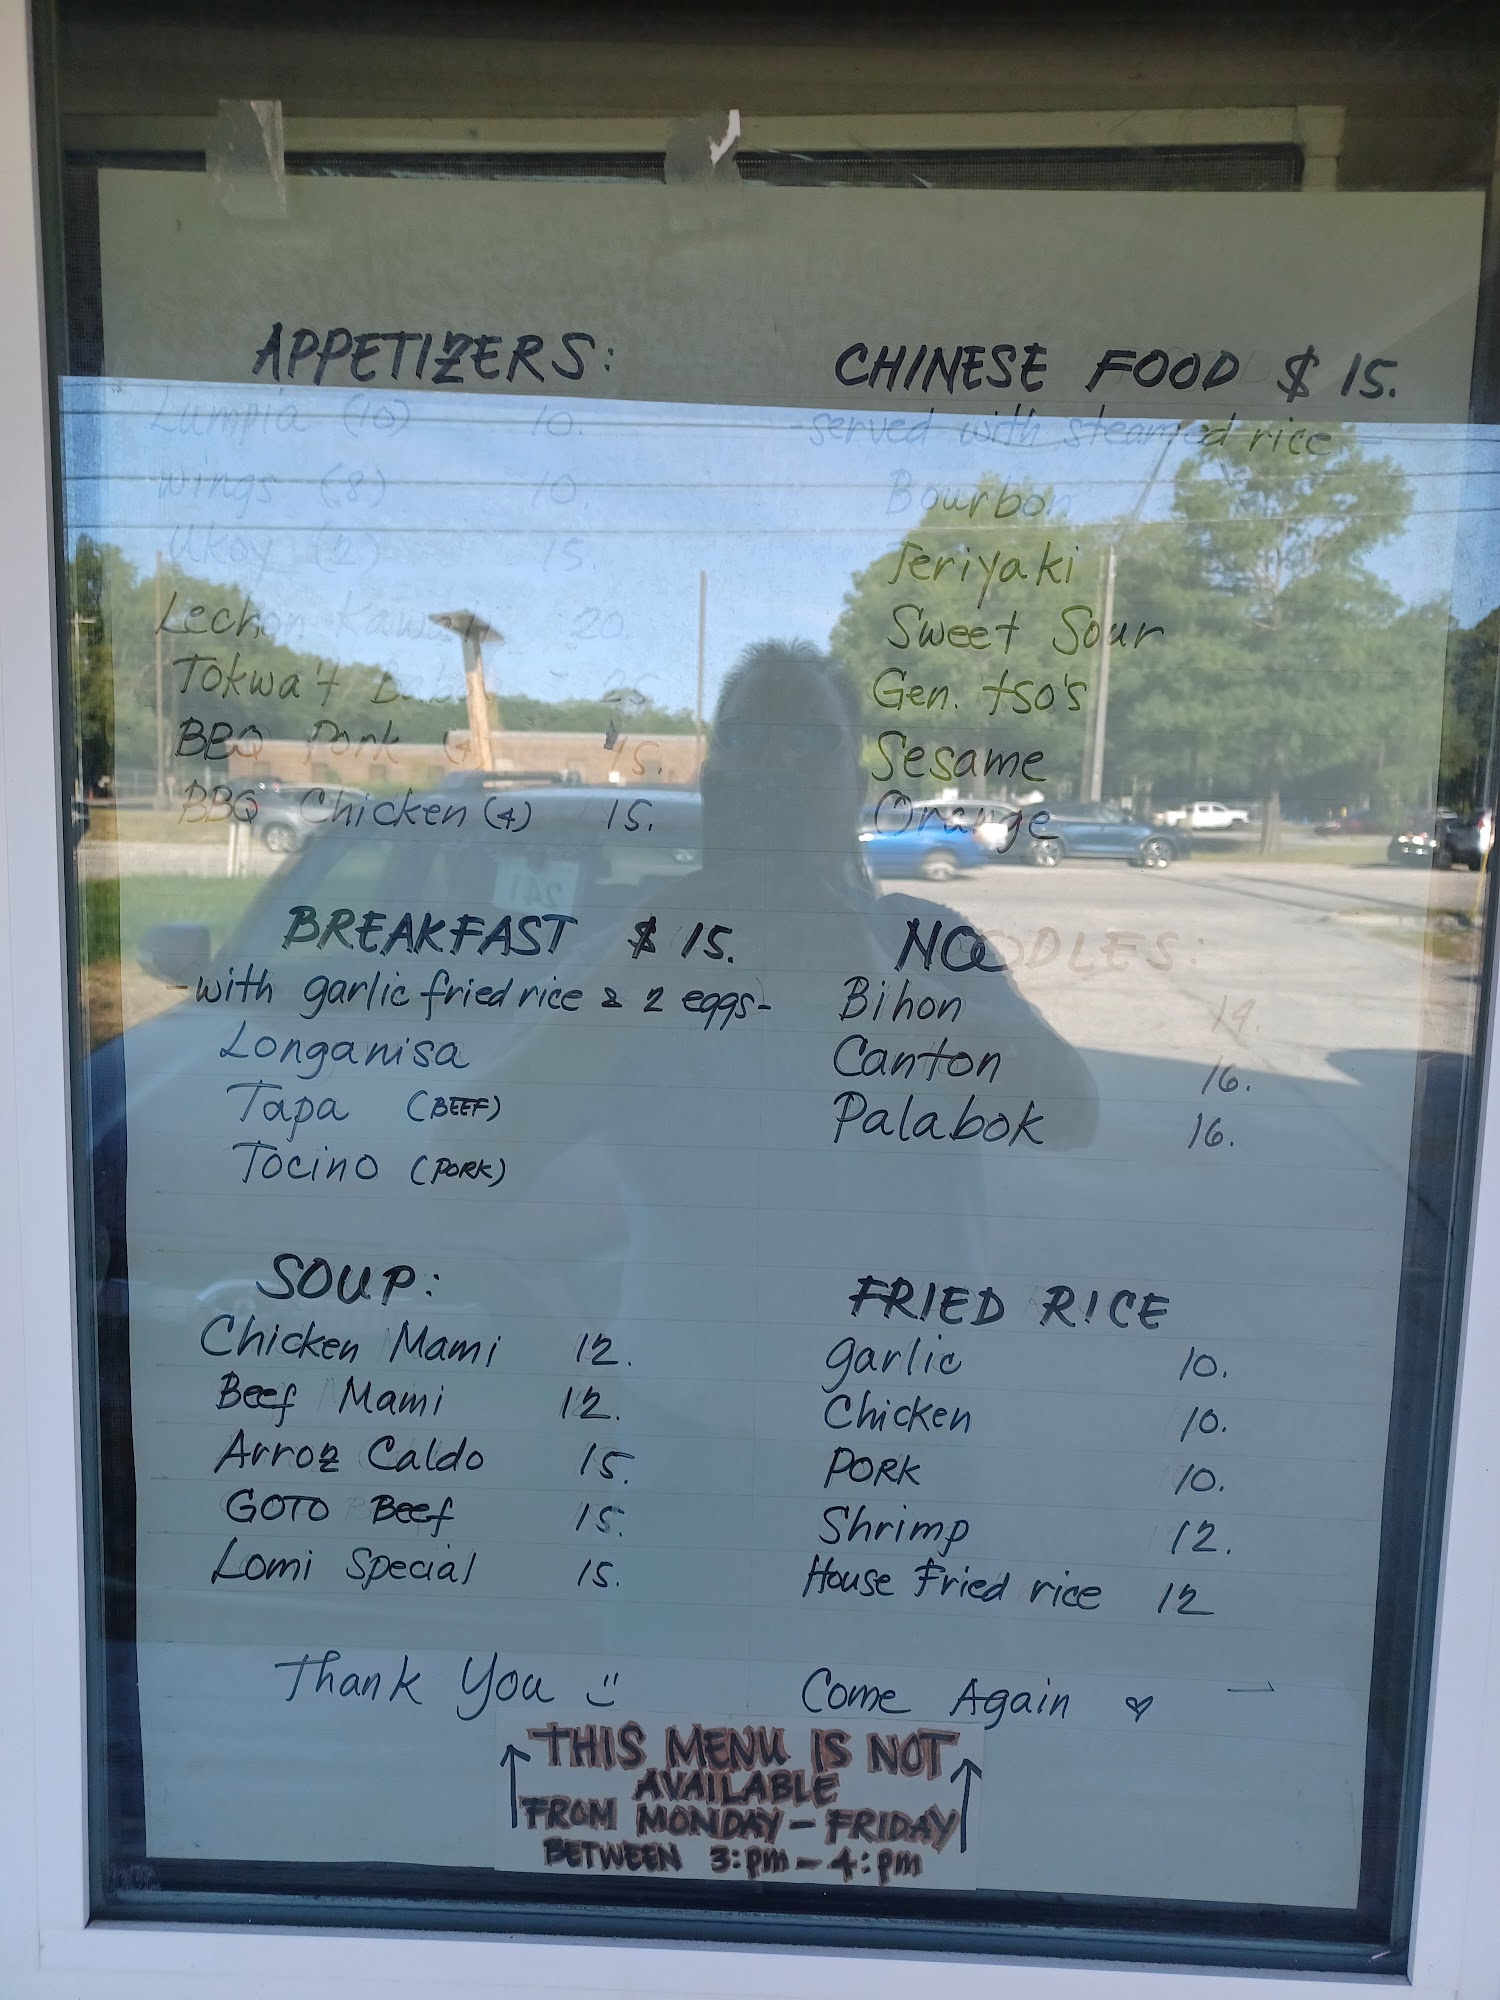 APPETIZERS:
Lumpia (10) 10.
Wings (8) 10.
Ukoy (2) 15.
Lechon Kawali 20.
Tokwa't 25
BBQ Pork (4 15.
BBQ Chicken (4) 15.
BREAKFAST $ 15.
-with garlic fried rice & 2 eggs-
Longanisa
Tapa (BEEF)
Tocino (PORK)
SOUP:
Chicken Mami 12.
Beef Mami 12.
Arroz Caldo 15.
GOTO Beef 15.
Lomi Special 15.
Thank You
CHINESE FOOD $ 15.
-served with steamed rice-
Bourbon
Teriyaki
Sweet Sour
Gen. tso's
Sesame
Orange
NOODLES:
Bihon 14.
Canton 16.
Palabok 16.
FRIED RICE
garlic 10.
Chicken 10.
PORK 10.
Shrimp 12.
House Fried rice 12
Come Again
THIS MENU IS NOT
AVAILABLE
FROM MONDAY - FRIDAY
BETWEEN 3:pm - 4:pm